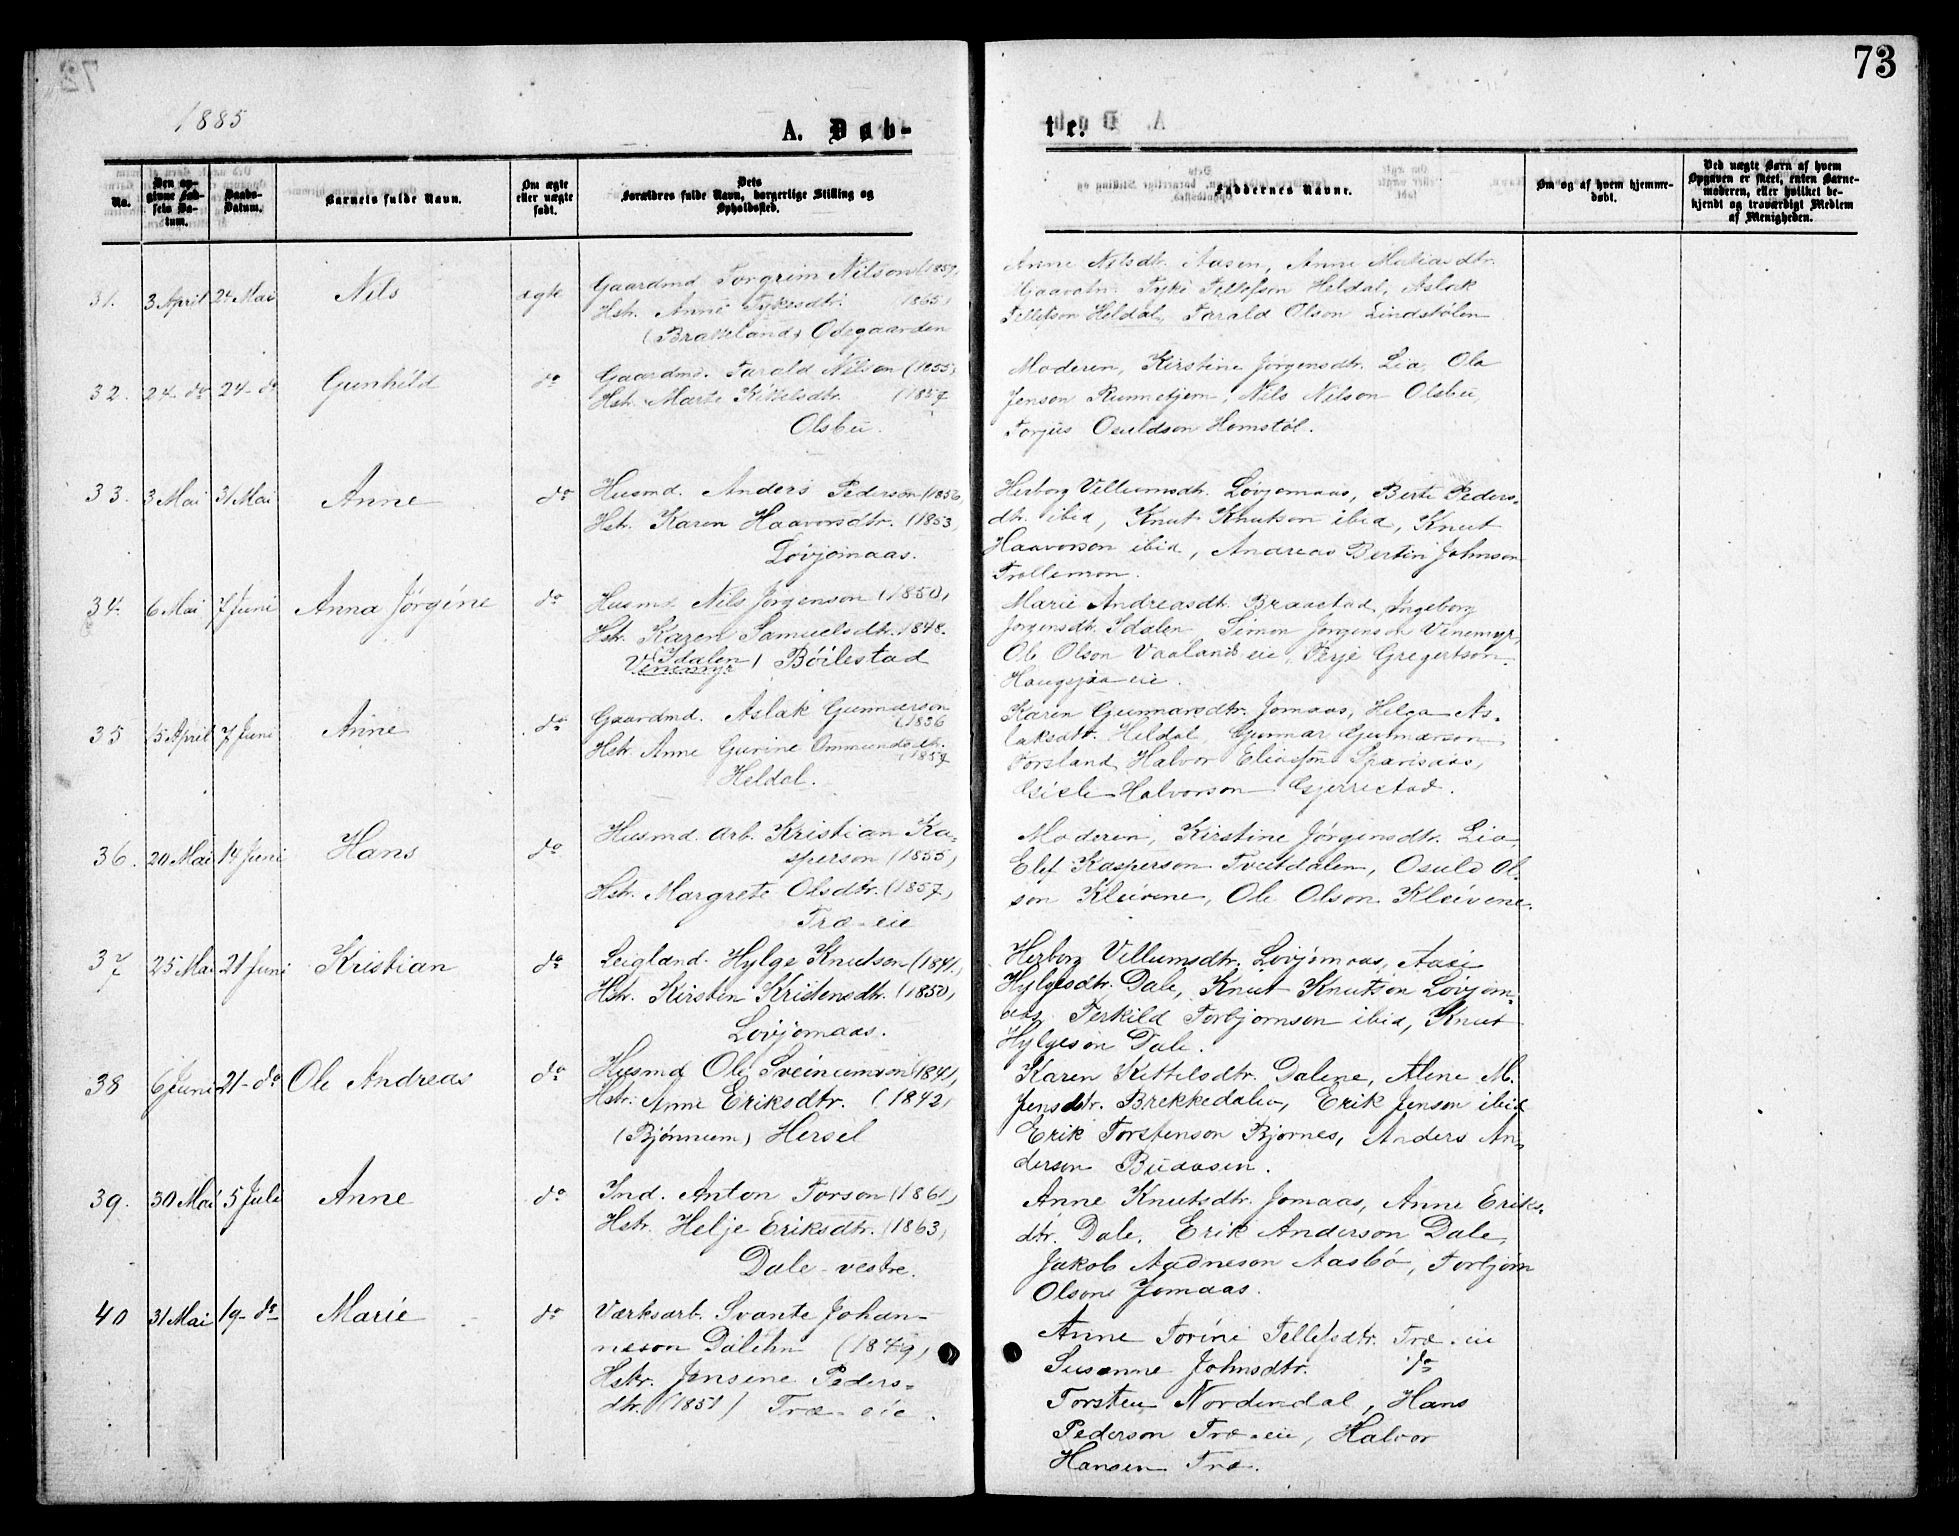 73
1885
A. Døb-
te.
No.
Den op-
givne Fød-
sels Da-
tum.
Daabs-
Datum.
Barnets fulde Navn.
Om ægte
eller uægte
født.
Dets
Forældres fulde Navn, borgerlige Stilling og
Opholdssted.
Faddernes Navne.
Om og af hvem hjemme-
døbt.
Ved uægte Børn af hvem
Opgaven er skeet, enten Barne-
moderen, eller hvilket be-
kjendt og troværdigt Medlem
af Menigheden.
31. 3 April 24 Mai Nils ægte
Gaardmd. Torgrim Nilson (1857)
Hstr. Anne Tykesdtr. 1865)
(Brakkeland) Ødegaarden
Anne Nilsdtr. Aasen, Anne Matiasdtr.
Tyke Tellefson Heldal, Aslak
Tellefson Heldal, Tarald Olson Lindstølen
32. 24 do 24 do Gunhild do
Gaardmd. Tarald Nilson (1855)
Hstr. Marte Kittelsdtr. (1857
Olsbu.
Moderen, Kirstine Jørgensdtr. Lia, Ole
Jenson Rumetjern, Nils Nilson Olsbu,
Torjus Osuldson Homstøl.
33. 3 Mai 31 Mai Anne do
Husmd. Anders Pederson (1856
Hstr. Karen Haavorsdtr. (1853)
Løvjomaas.
Herborg Villumsdtr. Løvjomaas, Berte Peders-
dtr. ibid, Knut Knutson ibid, Knut
Haavorson ibid, Andreas Bertin Johnson
Trollemon.
34. 6 Mai 7 Juni Anna Jørgine do
Husmd. Nils Jørgenson (1850)
Hstr. Karen Samuelsdtr. 1848.
Idalen
Vinemyr) Böilestad
Marie Andreasdtr. Braastad, Ingeborg
Jørgensdtr. Idalen Simon Jørgenson Vinemyr,
Ole Olson Vaalandseie, Terje Gregertson
Haugsjaa eie.
35 15 April 7 Juni Anne do
Gaardmd. Aslak Gunnarson
(1836
Hstr. Anne Gurine Ommundsdtr.
(1857
Heldal.
Karen Gunnarsdtr. Jomaas, Helga As-
laksdtr. Heldal, Gunnar Gunnarson
Forsland, Halvor Eliasson Sparsaas,
Gisle Halvorson Gjerrestad.
36. 20 Mai 14 Juni Hans do
Husmd. arb. Kristian Ka-
sperson (1855)
Hstr. Margrete Olsdtr. (1857)
Træ-eie
Moderen, Kirstine Jørgensdtr. Lia,
Elef Kasperson Tveitdalen, Osuld Ol-
son Kleivene, Ole Olson Kleivene.
37 25 Mai 21 Juni Kristian do
Leigland. Hylge Knutson (1841)
Hstr. Kirsten Kristensdtr. (1850)
Løvjomaas.
Herborg Villumsdtr. Løvjomaas, Aase
Hylgesdtr. Dale, Knut Knutson Løvjom-
aas, Terkild Torbjørnson ibid, Knut
Hylgeson Dale.
38 6 Juni 21 do Ole Andreas do
Husmd Ole Sveinumson (1841)
Hstr. Anne Eriksdtr. (1842)
(Bjønnum) Hersel
Karen Kittelsdtr. Dalene, Alene M.
Jensdtr. Brekkedalen, Erik Jenson ibid
Erik Torstenson Bjornes, Anders An-
derson Buaasen.
39. 30 Mai 5 Juli Anne do
Ind. Anton Torson (1861)
Hstr. Helje Eriksdtr. (1863)
Dale-vestre.
Anne Knutsdtr. Jomaas, Anne Eriks-
dtr. Dale, Erik Anderson Dale,
Jakob Aadneson Aasbø, Torbjørn
Olson Jomaas.
40 31 Mai 19 do Marie do
Værksarb. Svante Johan-
nesson Dalèhn (1849)
Hstr. Jensine Peders-
dtr. (1851) Træ-eie.
Anne Torine Tellefsdtr. Træ-eie
Susanne Johnsdtr. do
Torsten Nordendal, Hans
Pederson Træ-eie, Halvor
Hansen Træ.